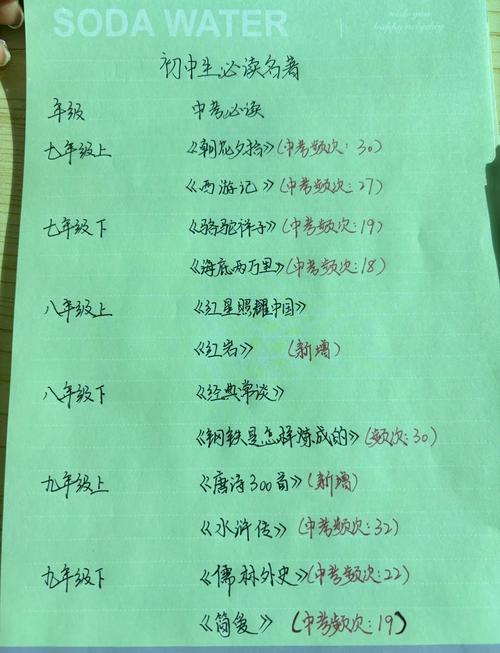 SODA WATER
初中生必读名著
年级 中考必读
七年级上 《朝花夕拾》(中考频次:30)
《西游记》(中考频次:27)
七年级下 《骆驼祥子》(中考频次:19)
《海底两万里》(中考频次:18)
八年级上 《红星照耀中国》
《红岩》 (新增)
八年级下 《经典常谈》
《钢铁是怎样炼成的》(频次:30)
九年级上 《唐诗300首》(新增)
《水浒传》(中考频次:32)
九年级下 《儒林外史》(中考频次:22)
《简爱》 (中考频次:19)